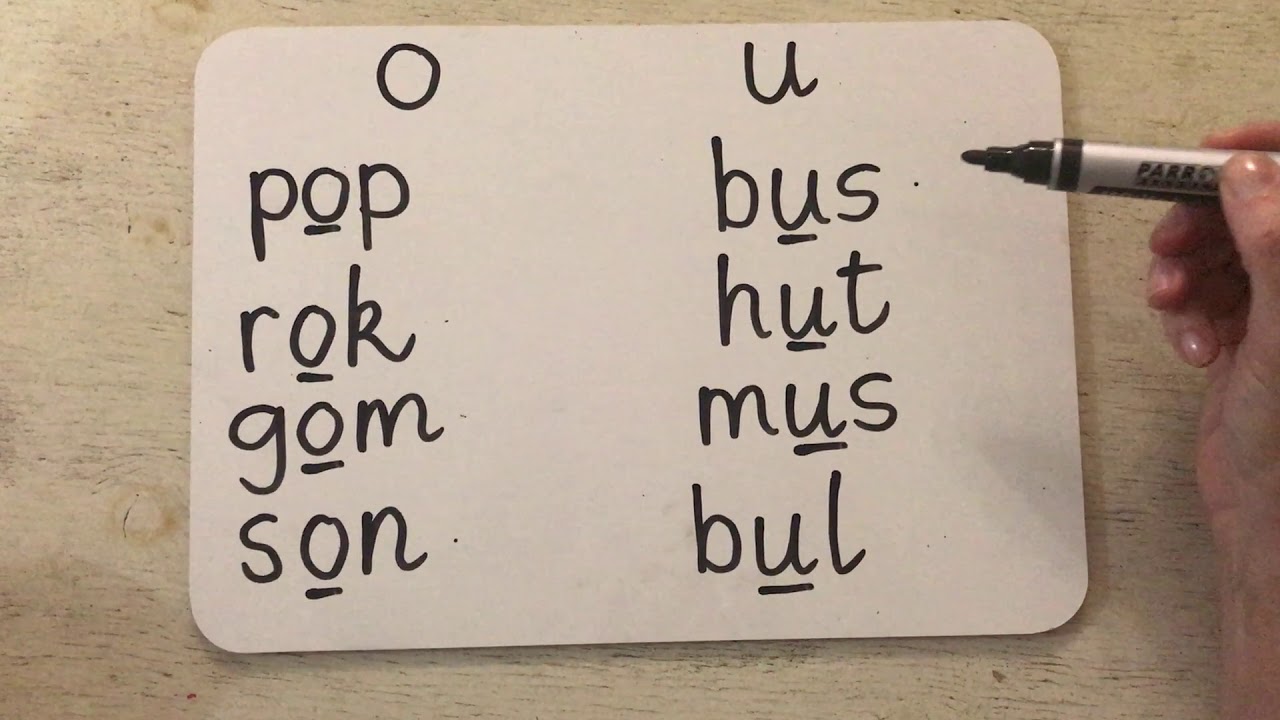 o u
pop bus
rok hut
gom mus
son bul
PARR